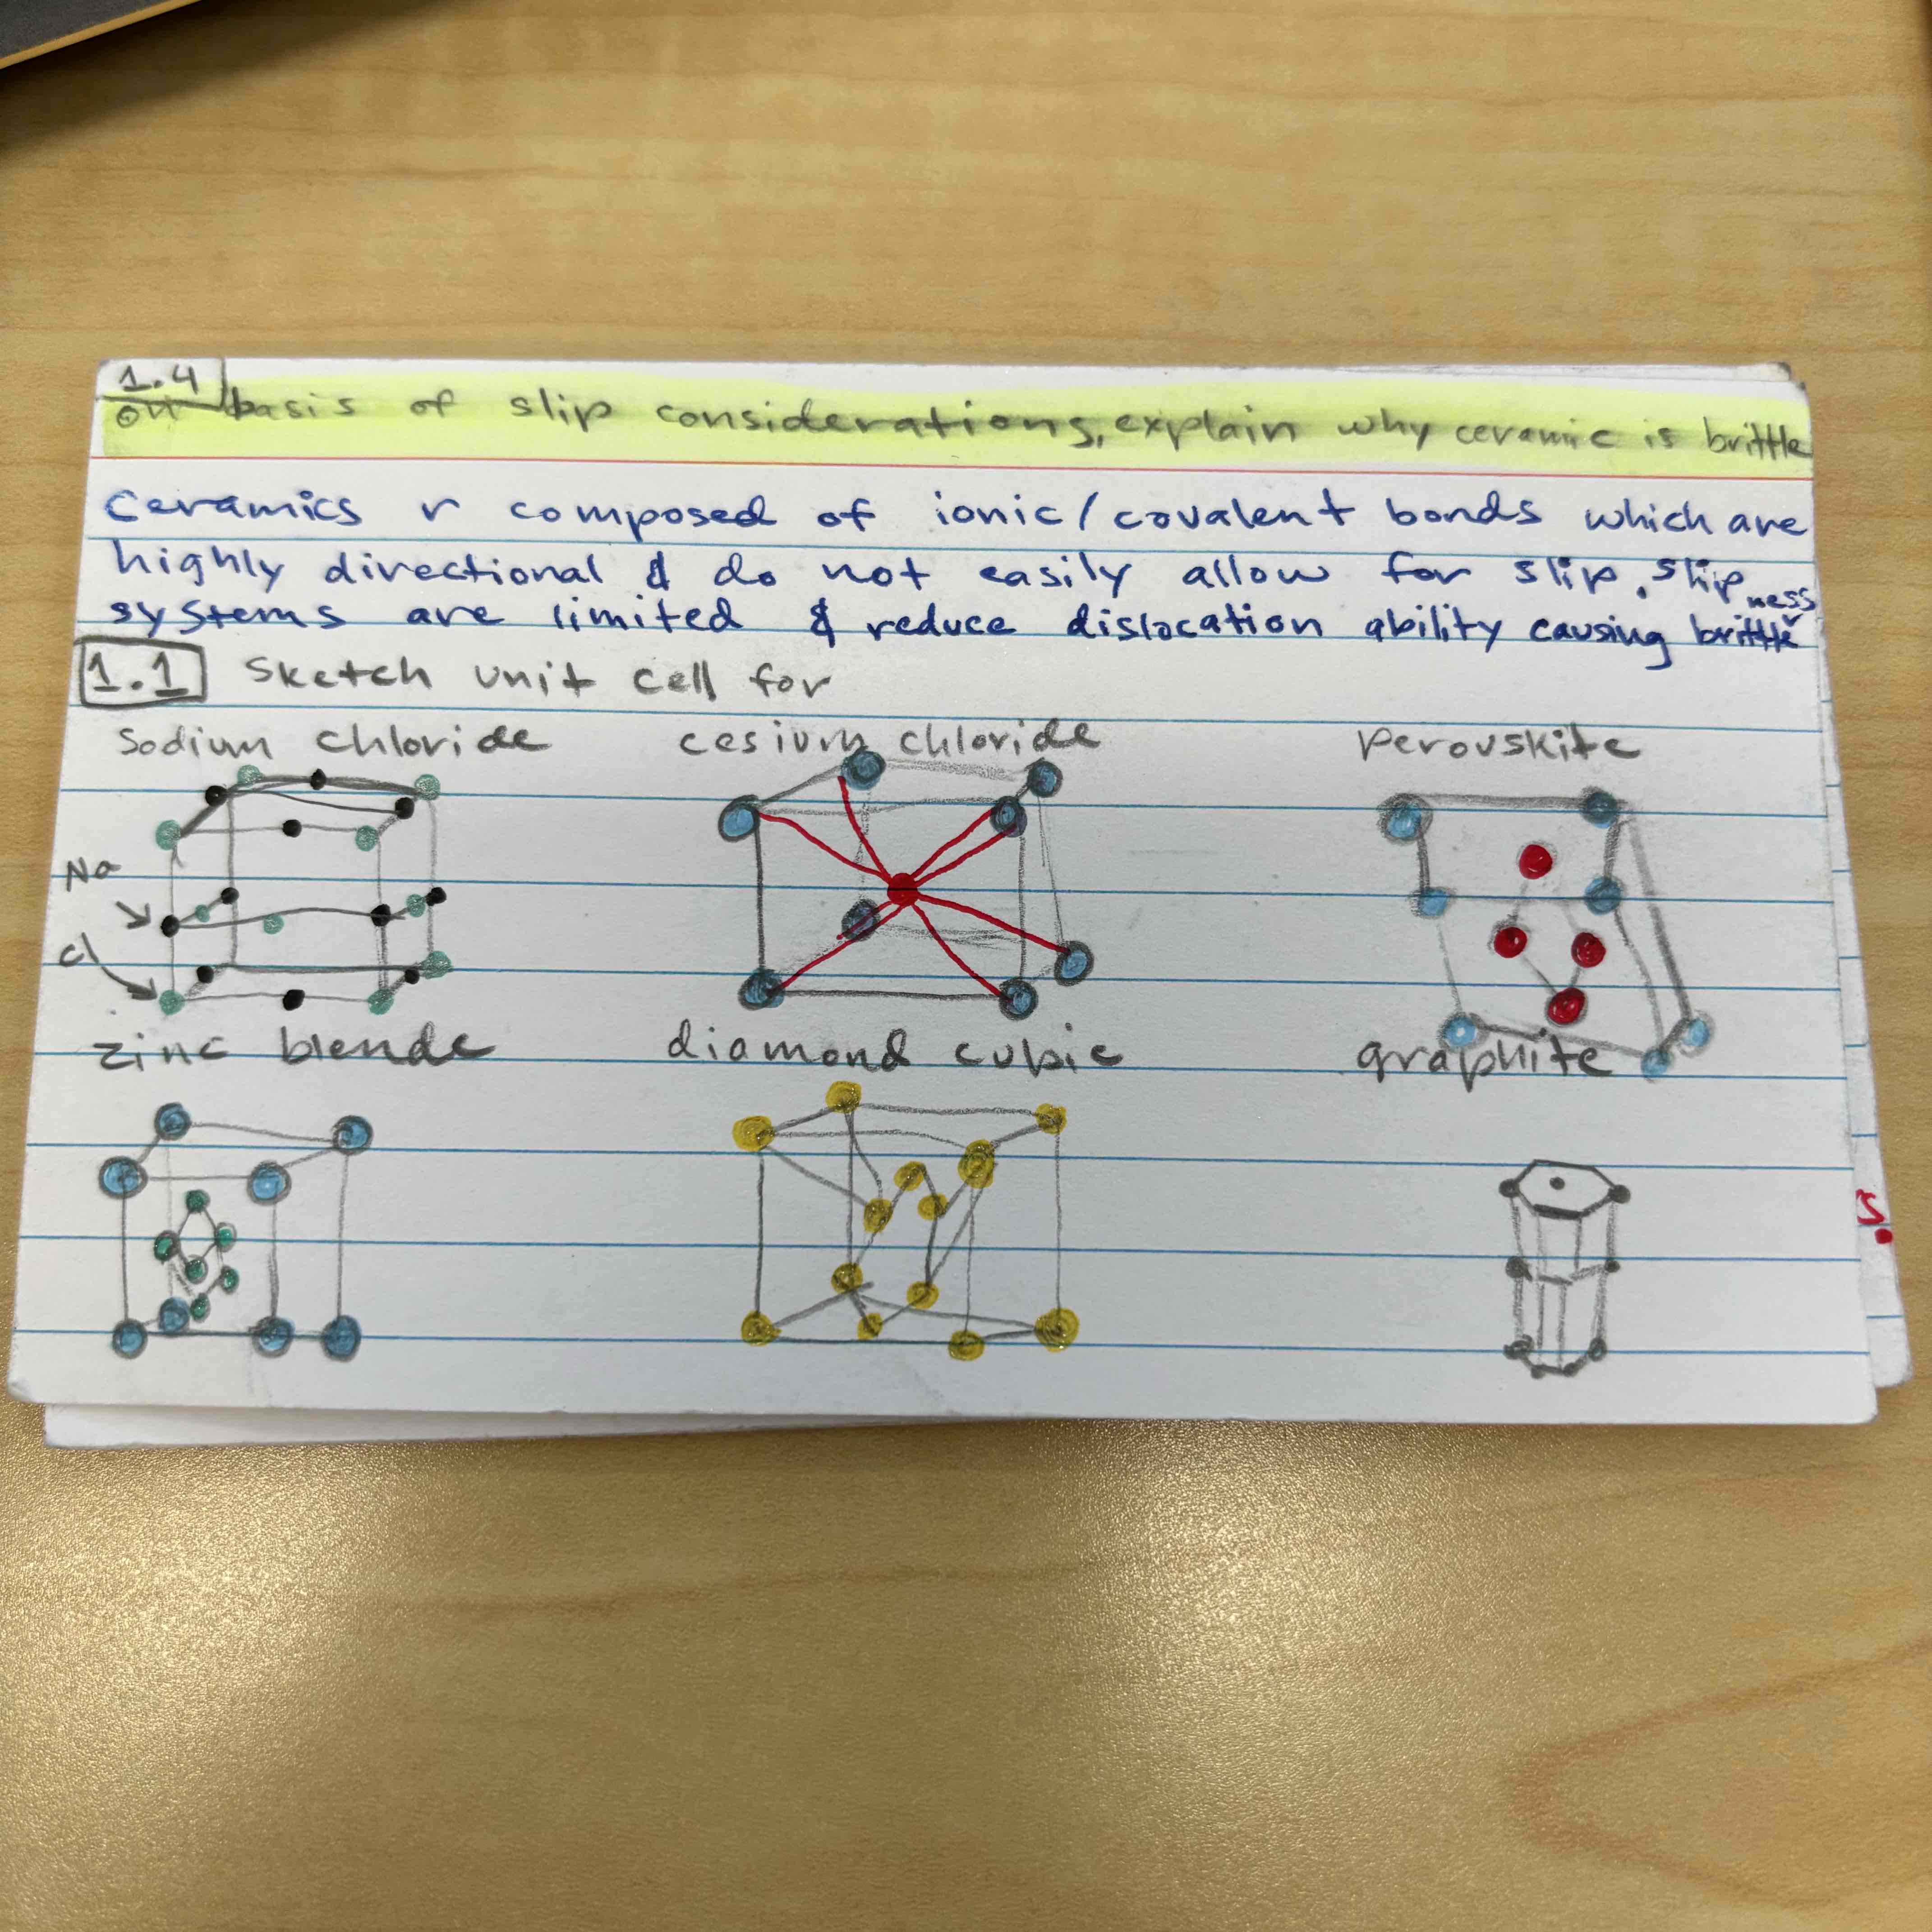 1.4
on basis of slip considerations, explain why ceramic is brittle
Ceramics r composed of ionic/covalent bonds which are
highly directional & do not easily allow for slip. Slip
systems are limited & reduce dislocation ability causing brittleness
1.1 Sketch unit cell for
Sodium chloride cesium chloride perovskite
Na
Cl
zinc blende diamond cubic graphite
s.